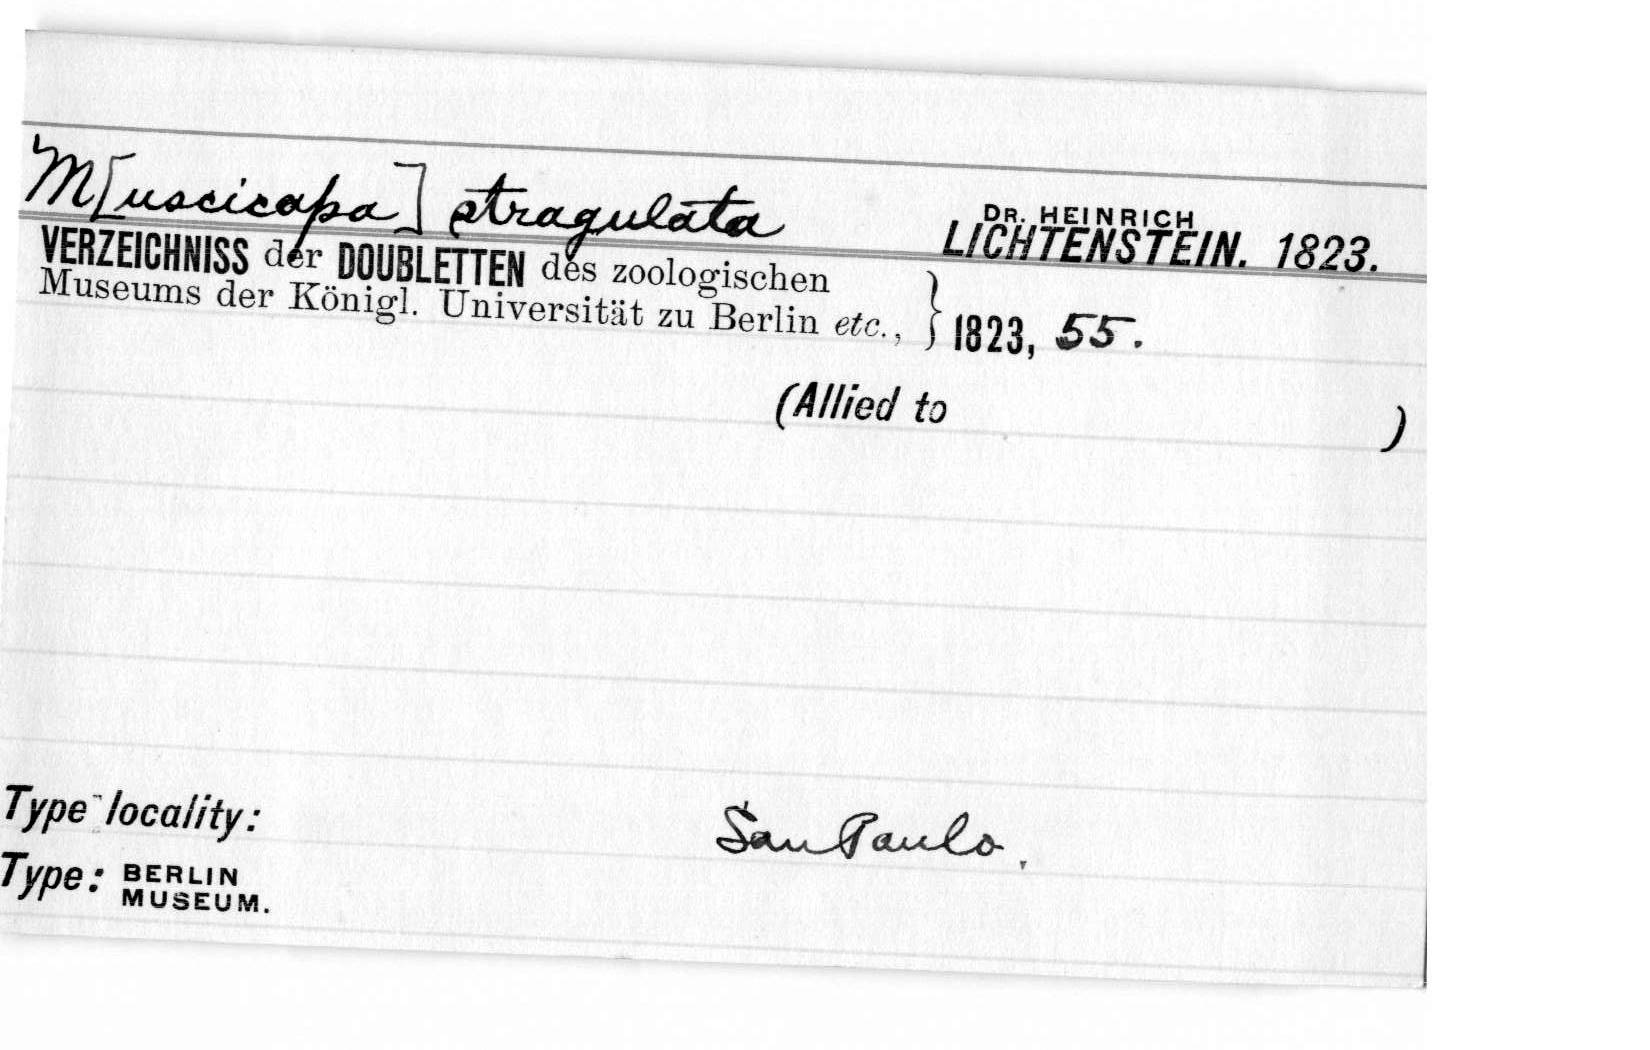 M[uscicapa] stragulata
DR. HEINRICH
LICHTENSTEIN. 1823.
VERZEICHNISS der DOUBLETTEN des zoologischen
Museums der Königl. Universität zu Berlin etc., } 1823, 55.
(Allied to )
Type locality: San Paulo.
Type: BERLIN
MUSEUM.